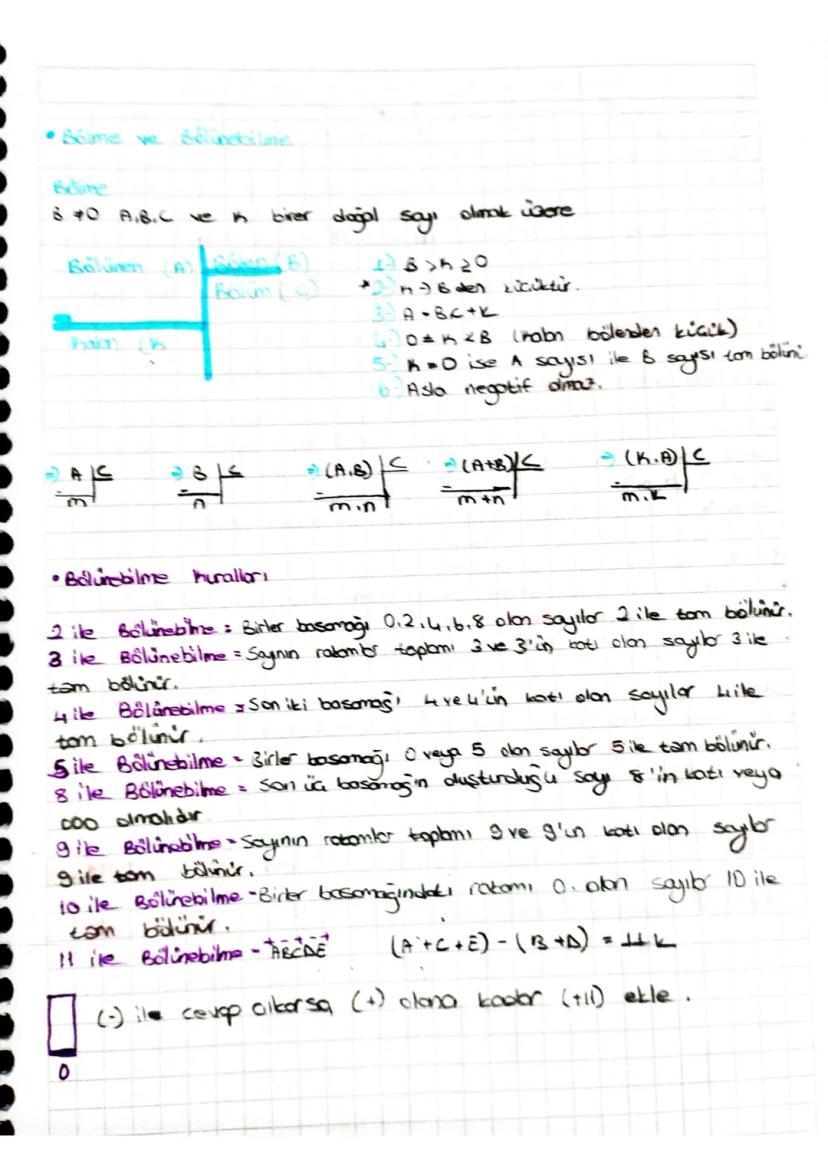 • Bölme ve Bölünebilme
Bölme
B ≠0 A,B,C ve K birer doğal sayı olmak üzere
Bölünen (A) Bölen (B)
Bölüm (C)
Kalan (K
1-) B > K ≥ 0
*2-) K → B den küçüktür.
3-) A = B.C + K
4-) 0 ≤ K < B (kalan bölenden küçük)
5-) K = 0 ise A sayısı ile B sayısı tam bölünü
6-) Asla negatif olmaz.
⇒ A | C ⇒ B | C ⇒ (A.B) | C ⇒ (A+B) | C ⇒ (K.A) | C
m n m.n m+n m.k
• Bölünebilme Kuralları
2 ile Bölünebilme = Birler basamağı 0,2,4,6,8 olan sayılar 2 ile tam bölünür.
3 ile Bölünebilme = Sayının rakamlar toplamı 3 ve 3'ün katı olan sayılar 3 ile
tam bölünür.
4 ile Bölünebilme = Son iki basamağı 4 ve 4'ün katı olan sayılar 4 ile
tam bölünür.
5 ile Bölünebilme = Birler basamağı 0 veya 5 olan sayılar 5 ile tam bölünür.
8 ile Bölünebilme = Son üç basamağın oluşturduğu sayı 8'in katı veya
000 olmalıdır
9 ile Bölünebilme = Sayının rakamlar toplamı 9 ve 9'un katı olan sayılar
9 ile tam bölünür.
10 ile Bölünebilme - Birler basamağındaki rakamı 0. olan sayılar 10 ile
tam bölünür.
11 ile Bölünebilme - ABCDE (A+C+E) - (B+D) = 11k
(-) ile cevap çıkarsa (+) olana kadar (+11) ekle.
0